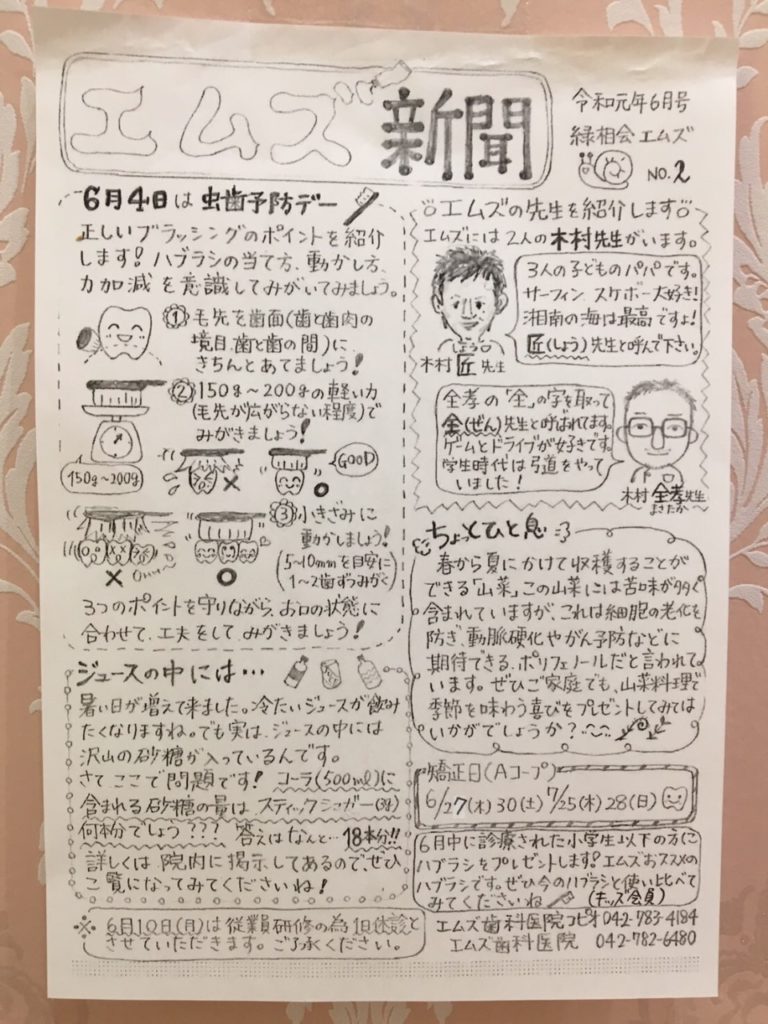 エムズ新聞
令和元年6月号
緑相会 エムズ
NO.2
6月4日は虫歯予防デー
正しいブラッシングのポイントを紹介
します!ハブラシの当て方、動かし方、
力加減を意識してみがいてみましょう。
① 毛先を歯面(歯と歯肉の
境目、歯と歯の間)に
きちんとあてましょう!
② 150g〜200gの軽い力
(毛先が広がらない程度)で
みがきましょう!
150g〜200g
GOOD
③ 小きざみに
動かしましょう!
(5〜10mmを目安に
1〜2歯ずつみがく)
3つのポイントを守りながら、お口の状態に
合わせて、工夫をしてみがきましょう!
ジュースの中には…
暑い日が増えて来ました。冷たいジュースが飲み
たくなりますね。でも実は、ジュースの中には
沢山の砂糖が入っているんです。
さて ここで問題です! コーラ(500ml)に
含まれる砂糖の量は スティックシュガー(3g)
何本分でしょう??? 答えはなんと…18本分!!
詳しくは 院内に掲示してあるので、ぜひ
ご覧になってみてくださいね!
※ 6月10日(月)は従業員研修の為1日休診と
させていただきます。ご了承ください。
エムズの先生を紹介します
エムズには2人の木村先生がいます。
3人の子どものパパです。
サーフィン、スケボー大好き!
湘南の海は最高ですよ!
匠(しょう)先生と呼んで下さい。
しょう
木村 匠 先生
全孝の「全」の字を取って
全(ぜん)先生と呼ばれてます。
ゲームとドライブが好きです。
学生時代は弓道をやって
いました!
木村 全孝先生
まさたか
ちょっとひと息
春から夏にかけて収穫することが
できる「山菜」この山菜には苦味が多く
含まれていますが、これは細胞の老化を
防ぎ、動脈硬化やがん予防などに
期待できる、ポリフェノールだと言われて
います。ぜひご家庭でも、山菜料理で
季節を味わう喜びをプレゼントしてみては
いかがでしょうか?
矯正日(Aコープ)
6/27(木) 30(土) 7/25(木) 28(日)
6月中に診療された小学生以下の方に
ハブラシをプレゼントします!エムズおススメの
ハブラシです。ぜひ今のハブラシと使い比べて
みてくださいね
(キッズ会員)
エムズ歯科医院コピオ 042-783-4184
エムズ歯科医院 042-782-6480